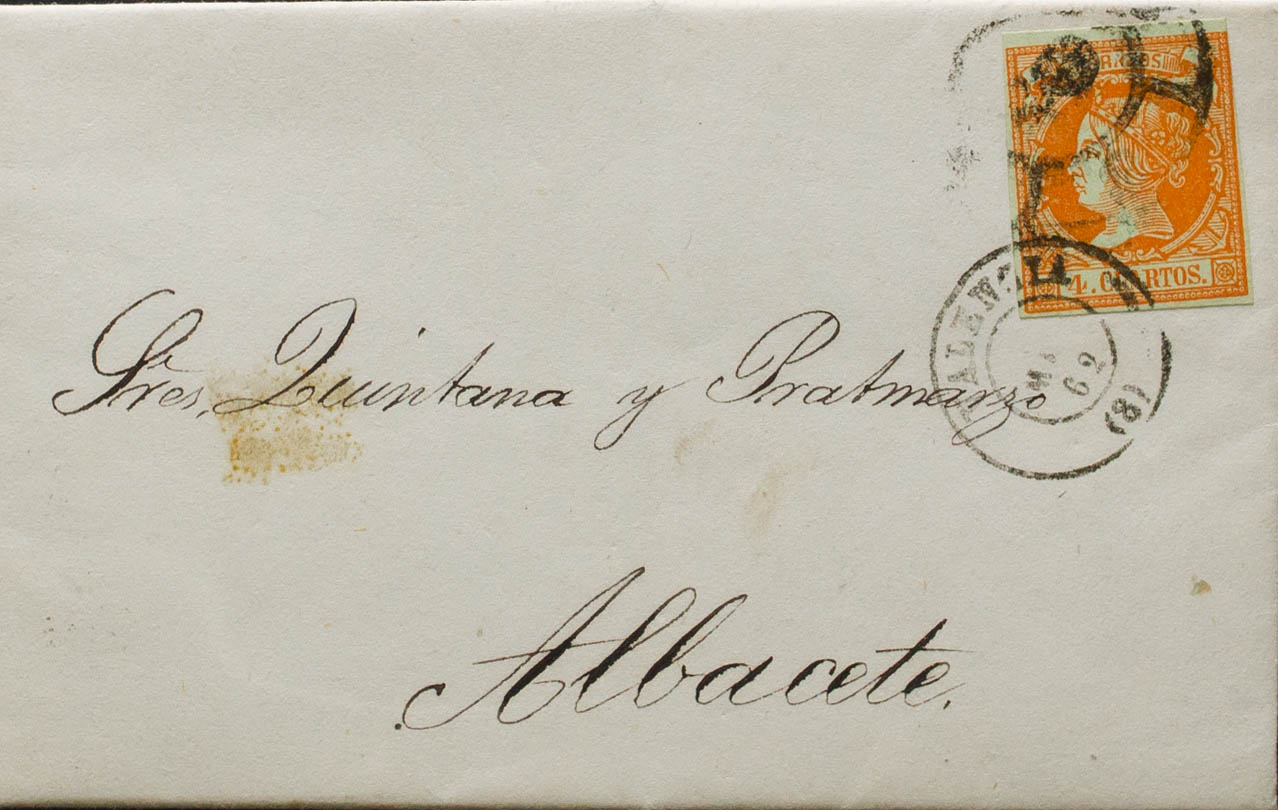 CORREOS
4. CUARTOS.
VALENCIA
62
(8)
Sres, Quintana y Pratmarzo
Albacete.